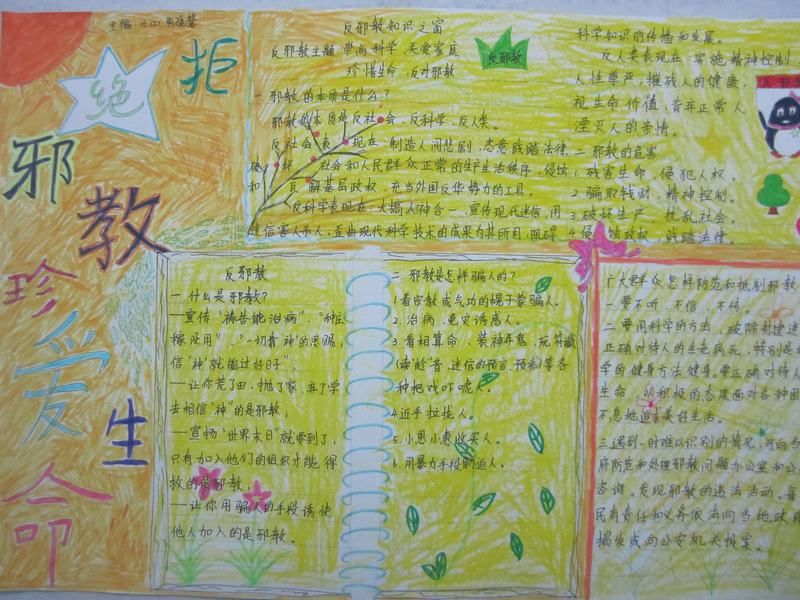 拒
绝
邪
教
珍
爱
生
命
反邪教知识之窗
反邪教主题:崇尚科学、关爱家庭
珍惜生命、反对邪教
反邪教
一.邪教的本质是什么?
邪教的本质是反社会,反科学,反人类。
反社会表现在:制造人间悲剧,恣意践踏法律,
破坏社会和人民群众正常的生产生活秩序,侵蚀
和反解基层政权,充当外国反华势力的工具。
反科学表现在:大搞人神合一,宣传现代迷信,用
迷信害人杀人;歪曲现代科学技术的成果为其所用,阻碍
科学知识的传播和发展。
反人类表现在:实施精神控制,
人性尊严,摧残人的健康,
视生命价值,背弃正常人
湮灭人的亲情。
二.邪教的危害
1.残害生命,侵犯人权。
2.骗取钱财,精神控制。
3.破坏生产,扰乱社会。
4.侵蚀政权,践踏法律。
反邪教
一.什么是邪教?
—宣传“祷告能治病”、“种庄
稼没用”、“一切靠神”的思赐,
信“神”就能过好日子”;
—让你荒了田、抛了家、弃了学
去相信“神”的是邪教;
—宣扬“世界末日”就要到了,
只有加入他们的组织才能得
救的是邪教;
—让你用骗人的手段诱使
他人加入的是邪教。
二.邪教是怎样骗人的?
1.着宗教或气功的幌子蒙骗人。
2.治病、免灾诱惑人。
3.看相算命、装神弄鬼、玩符
迷信的预言、预兆)等各
种把戏吓唬人。
4.近乎拉拢人。
5.小恩小惠收买人。
6.用暴力手段胁迫人。
广大群众怎样防范和抵制邪教
一.要不听、不信、不传。
二.要用科学的方法,破除封建迷
正确对待人的生老病死,特别是
学的健身方法健身。要正确对待人
生命,以积极的态度面对各种困
不息地追美好生活。
三.遇到一时难以识别的情况,可向当
府防范和处理邪教问题办公室和公
咨询。发现邪教的违法活动,每
民有责任和义务依法向当地政府
揭发或向公安机关报案。